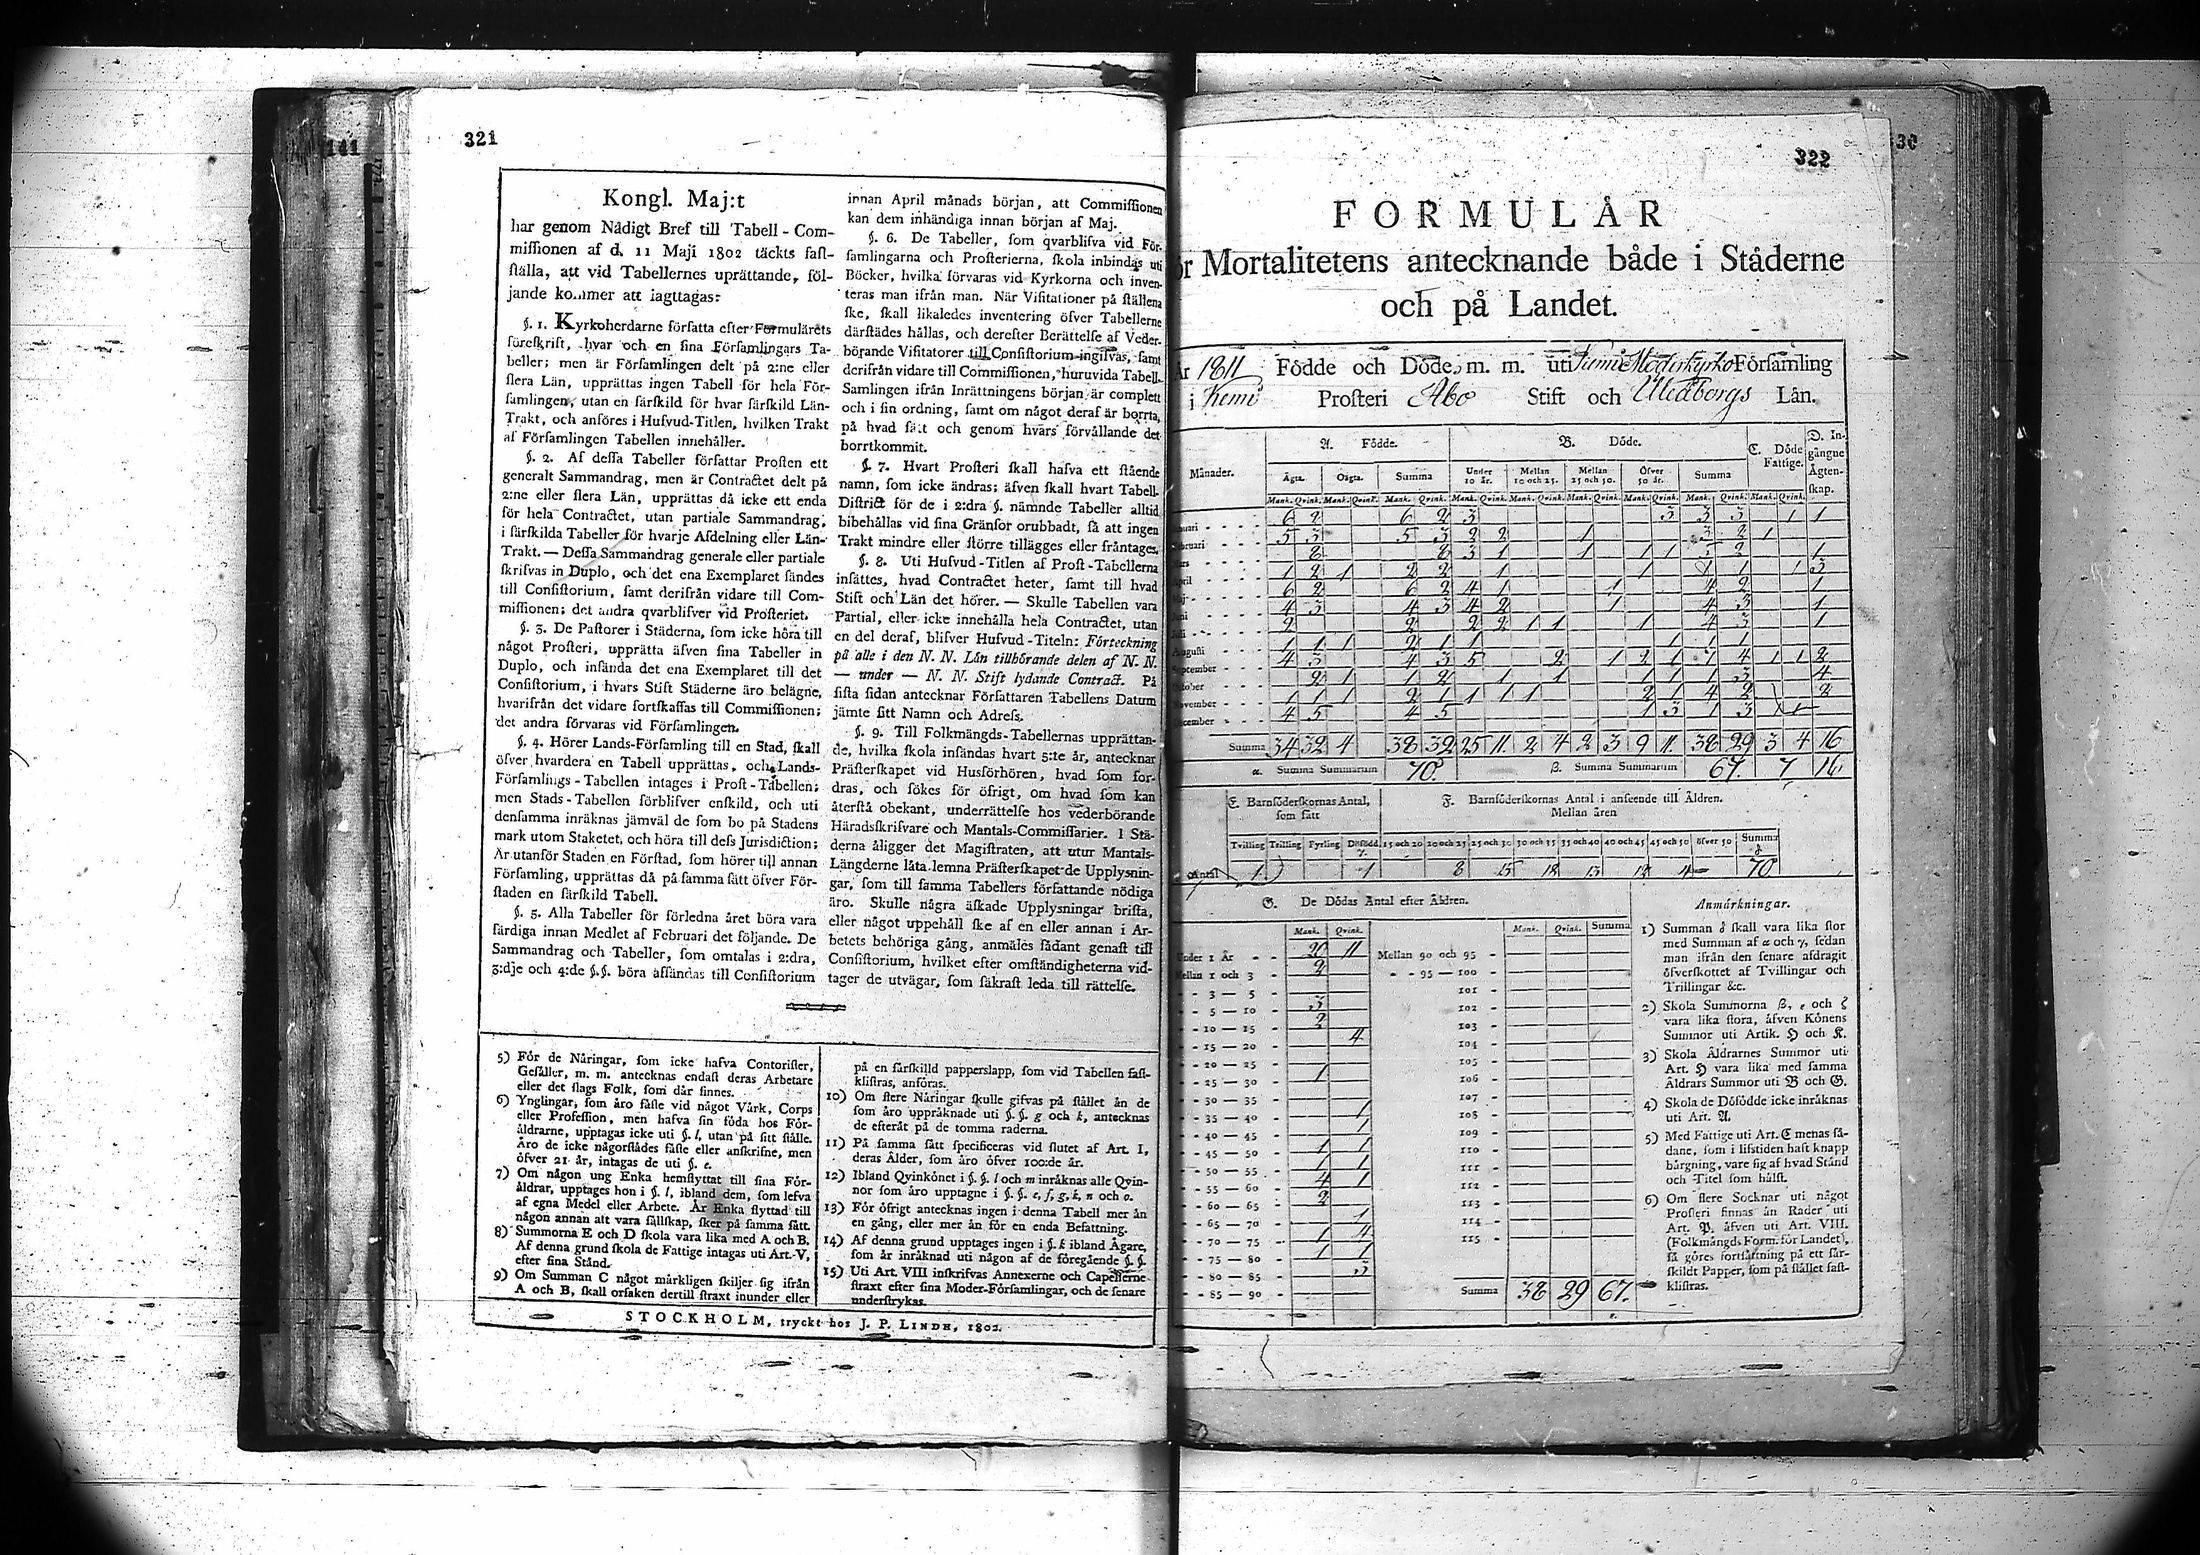 141
321
Kongl. Maj:t
har genom Nådigt Bref till Tabell-Com-
missionen af d. 11 Maji 1802 täckts fast-
ställa, att vid Tabellernes uprättande, föl-
jande kommer att iagttagas:
§. 1. Kyrkoherdarne författa efter Formulärets
föreskrift, hvar och en sina Församlingars Ta-
beller; men är Församlingen delt på 2:ne eller
flera Län, upprättas ingen Tabell för hela För-
samlingen, utan en särskild för hvar särskild Län-
Trakt, och anföres i Hufvud-Titlen, hvilken Trakt
af Församlingen Tabellen innehåller.
§. 2. Af dessa Tabeller författar Prosten ett
generalt Sammandrag, men är Contractet delt på
2:ne eller flera Län, upprättas då icke ett enda
för hela Contractet, utan partiale Sammandrag,
i särskilda Tabeller för hvarje Afdelning eller Län-
Trakt. — Dessa Sammandrag generale eller partiale
skrifvas in Duplo, och det ena Exemplaret sändes
till Consistorium, samt derifrån vidare till Com-
missionen; det andra qvarblifver vid Prosteriet.
§. 3. De Pastorer i Städerna, som icke höra till
något Prosteri, upprätta äfven sina Tabeller in
Duplo, och insända det ena Exemplaret till det
Consistorium, i hvars Stift Städerne äro belägne,
hvarifrån det vidare fortskaffas till Commissionen;
det andra förvaras vid Församlingen.
§. 4. Hörer Lands-Församling till en Stad, skall
öfver hvardera en Tabell upprättas, och Lands-
Församlings-Tabellen intages i Prost-Tabellen;
men Stads-Tabellen förblifver enskild, och uti
densamma inräknas jämväl de som bo på Stadens
mark utom Staketet, och höra till dess Jurisdiction;
Är utanför Staden en Förstad, som hörer till annan
Församling, upprättas då på samma sätt öfver För-
staden en särskild Tabell.
§. 5. Alla Tabeller för förledna året böra vara
färdiga innan Medlet af Februari det följande. De
Sammandrag och Tabeller, som omtalas i 2:dra,
3:dje och 4:de §.§. böra afsändas till Consistorium
innan April månads början, att Commissionen
kan dem inhändiga innan början af Maj.
§. 6. De Tabeller, som qvarblifva vid För-
samlingarna och Prosterierna, skola inbindas uti
Böcker, hvilka förvaras vid Kyrkorna och inven-
teras man ifrån man. När Visitationer på ställena
ske, skall likaledes inventering öfver Tabellerne
därstädes hållas, och derefter Berättelse af Veder-
börande Visitatorer till Consistorium ingifvas, samt
derifrån vidare till Commissionen, huruvida Tabell-
Samlingen ifrån Inrättningens början är complett
och i sin ordning, samt om något deraf är borrta,
på hvad sätt och genom hvars förvållande det
borrtkommit.
§. 7. Hvart Prosteri skall hafva ett stående
namn, som icke ändras; äfven skall hvart Tabell-
District för de i 2:dra §. nämnde Tabeller alltid
bibehållas vid sina Gränsor orubbadt, så att ingen
Trakt mindre eller större tillägges eller fråntages.
§. 8. Uti Hufvud-Titlen af Prost-Tabellerna
insättes, hvad Contractet heter, samt till hvad
Stift och Län det hörer. — Skulle Tabellen vara
Partial, eller icke innehålla hela Contractet, utan
en del deraf, blifver Hufvud-Titeln: Förteckning
på alle i den N. N. Län tillhörande delen af N. N.
— under — N. N. Stift lydande Contract. På
sista sidan antecknar Författaren Tabellens Datum
jämte sitt Namn och Adress.
§. 9. Till Folkmängds-Tabellernas upprättan-
de, hvilka skola insändas hvart 5:te år, antecknar
Prästerskapet vid Husförhören, hvad som for-
dras, och sökes för öfrigt, om hvad som kan
återstå obekant, underrättelse hos vederbörande
Häradsskrifvare och Mantals-Commissarier. I Stä-
derna åligger det Magistraten, att utur Mantals-
Längderne låta lemna Prästerskapet de Upplysnin-
gar, som till samma Tabellers författande nödiga
äro. Skulle några äskade Upplysningar brista,
eller något uppehåll ske af en eller annan i Ar-
betets behöriga gång, anmäles sådant genast till
Consistorium, hvilket efter omständigheterna vid-
tager de utvägar, som säkrast leda till rättelse.
5) För de Näringar, som icke hafva Contorister,
Gesäller, m. m. antecknas endast deras Arbetare
eller det slags Folk, som där finnes.
6) Ynglingar, som äro fäste vid något Värk, Corps
eller Profession, men hafva sin föda hos För-
äldrarne, upptagas icke uti §. l, utan på sitt ställe.
Äro de icke någorstädes fäste eller anskrifne, men
öfver 21 år, intagas de uti §. e.
7) Om någon ung Enka hemflyttat till sina För-
äldrar, upptages hon i §. l, ibland dem, som lefva
af egna Medel eller Arbete. Är Enka flyttad till
någon annan att vara sällskap, sker på samma sätt.
8) Summorna E och D skola vara lika med A och B.
Af denna grund skola de Fattige intagas uti Art. V,
efter sina Stånd.
9) Om Summan C något märkligen skiljer sig ifrån
A och B, skall orsaken dertill straxt inunder eller
på en särskilld papperslapp, som vid Tabellen fast-
klistras, anföras.
10) Om flere Näringar skulle gifvas på stället än de
som äro uppräknade uti §. §. g och k, antecknas
de efteråt på de tomma raderna.
11) På samma sätt specificeras vid slutet af Art. I,
deras Ålder, som äro öfver 100:de år.
12) Ibland Qvinkönet i §. §. l och m inräknas alle Qvin-
nor som äro upptagne i §. §. e, f, g, k, n och o.
13) För öfrigt antecknas ingen i denna Tabell mer än
en gång, eller mer än för en enda Befattning.
14) Af denna grund upptages ingen i §. k ibland Ägare,
som är inräknad uti någon af de föregående §. §.
15) Uti Art. VIII inskrifvas Annexerne och Capellerne
straxt efter sina Moder-Församlingar, och de senare
understrykas.
STOCKHOLM, tryckt hos J. P. LINDH, 1802.
322
FORMULÄR
Mortalitetens antecknande både i Städerne
och på Landet.
År 1811 Födde och Döde, m. m. uti Kemi Moderkyrko Församling
i Kemi Prosteri Åbo Stift och Uleåborgs Län.
Månader.
A. Födde.
B. Döde.
C. Döde Fattige.
D. Ingångne Ägtenskap.
Ägta. Oägta. Summa Under 10 år. Mellan 10 och 25. Mellan 25 och 50. Öfver 50 år. Summa
Mank. Qvink. Mank. Qvink. Mank. Qvink. Mank. Qvink. Mank. Qvink. Mank. Qvink. Mank. Qvink. Mank. Qvink. Mank. Qvink.
6 2 6 2 3 3 3 3 1 1
5 3 5 3 2 2 1 3 2 1
8 8 3 1 1 1 1 5 2 1
April 1 2 1 2 2 1 1 1 1 1 3
Maj 6 2 6 2 4 1 1 4 2 1
Juni 4 3 4 3 4 2 1 4 3 1
Juli 2 2 2 2 1 1 1 4 3 1
Augusti 1 1 1 2 1 1 1 1 1
September 4 3 4 3 5 2 1 2 1 7 4 1 1 2
October 2 1 1 2 1 1 1 1 1 3 4
November 1 1 1 2 1 1 1 1 1 2 1 4 2 2
December 4 5 4 5 1 3 1 3
Summa 34 32 4 38 32 25 11 2 4 2 3 9 11 38 29 3 4 16
α. Summa Summarum 70. β. Summa Summarum 67. 7 16
E. Barnföderskornas Antal, som fått
F. Barnföderskornas Antal i anseende till Åldren.
Mellan åren
Tvilling Trilling Fyrling Dödfödd γ. 15 och 20 20 och 25 25 och 30 30 och 35 35 och 40 40 och 45 45 och 50 öfver 50 Summa δ
Antal 1 1 8 15 18 13 12 4 70
G. De Dödas Antal efter Åldren.
Mank. Qvink.
Under 1 År 20 11
Mellan 1 och 3 2
3 — 5
5 — 10 3
10 — 15 2
15 — 20 4
20 — 25
25 — 30 1
30 — 35
35 — 40 1
40 — 45 1
45 — 50 1 1
50 — 55 1 1
55 — 60 4 1
60 — 65 2
65 — 70 1
70 — 75 1 4
75 — 80 1 1
80 — 85 3
85 — 90
Mank. Qvink. Summa
Mellan 90 och 95
95 — 100
101
102
103
104
105
106
107
108
109
110
111
112
113
114
115
Summa 38 29 67.
Anmärkningar.
1) Summan δ skall vara lika stor
med Summan af α och γ, sedan
man ifrån den senare afdragit
öfverskottet af Tvillingar och
Trillingar &c.
2) Skola Summorna β, ε och ζ
vara lika stora, äfven Könens
Summor uti Artik. H och K.
3) Skola Åldrarnes Summor uti
Art. H vara lika med samma
Åldrars Summor uti B och G.
4) Skola de Dödfödde icke inräknas
uti Art. A.
5) Med Fattige uti Art. C menas så-
dane, som i lifstiden haft knapp
bärgning, vare sig af hvad Stånd
och Titel som hälst.
6) Om flere Socknar uti något
Prosteri finnas än Rader uti
Art. P. äfven uti Art. VIII.
(Folkmängds Form. för Landet),
så göres fortsättning på ett sär-
skildt Papper, som på stället fast-
klistras.